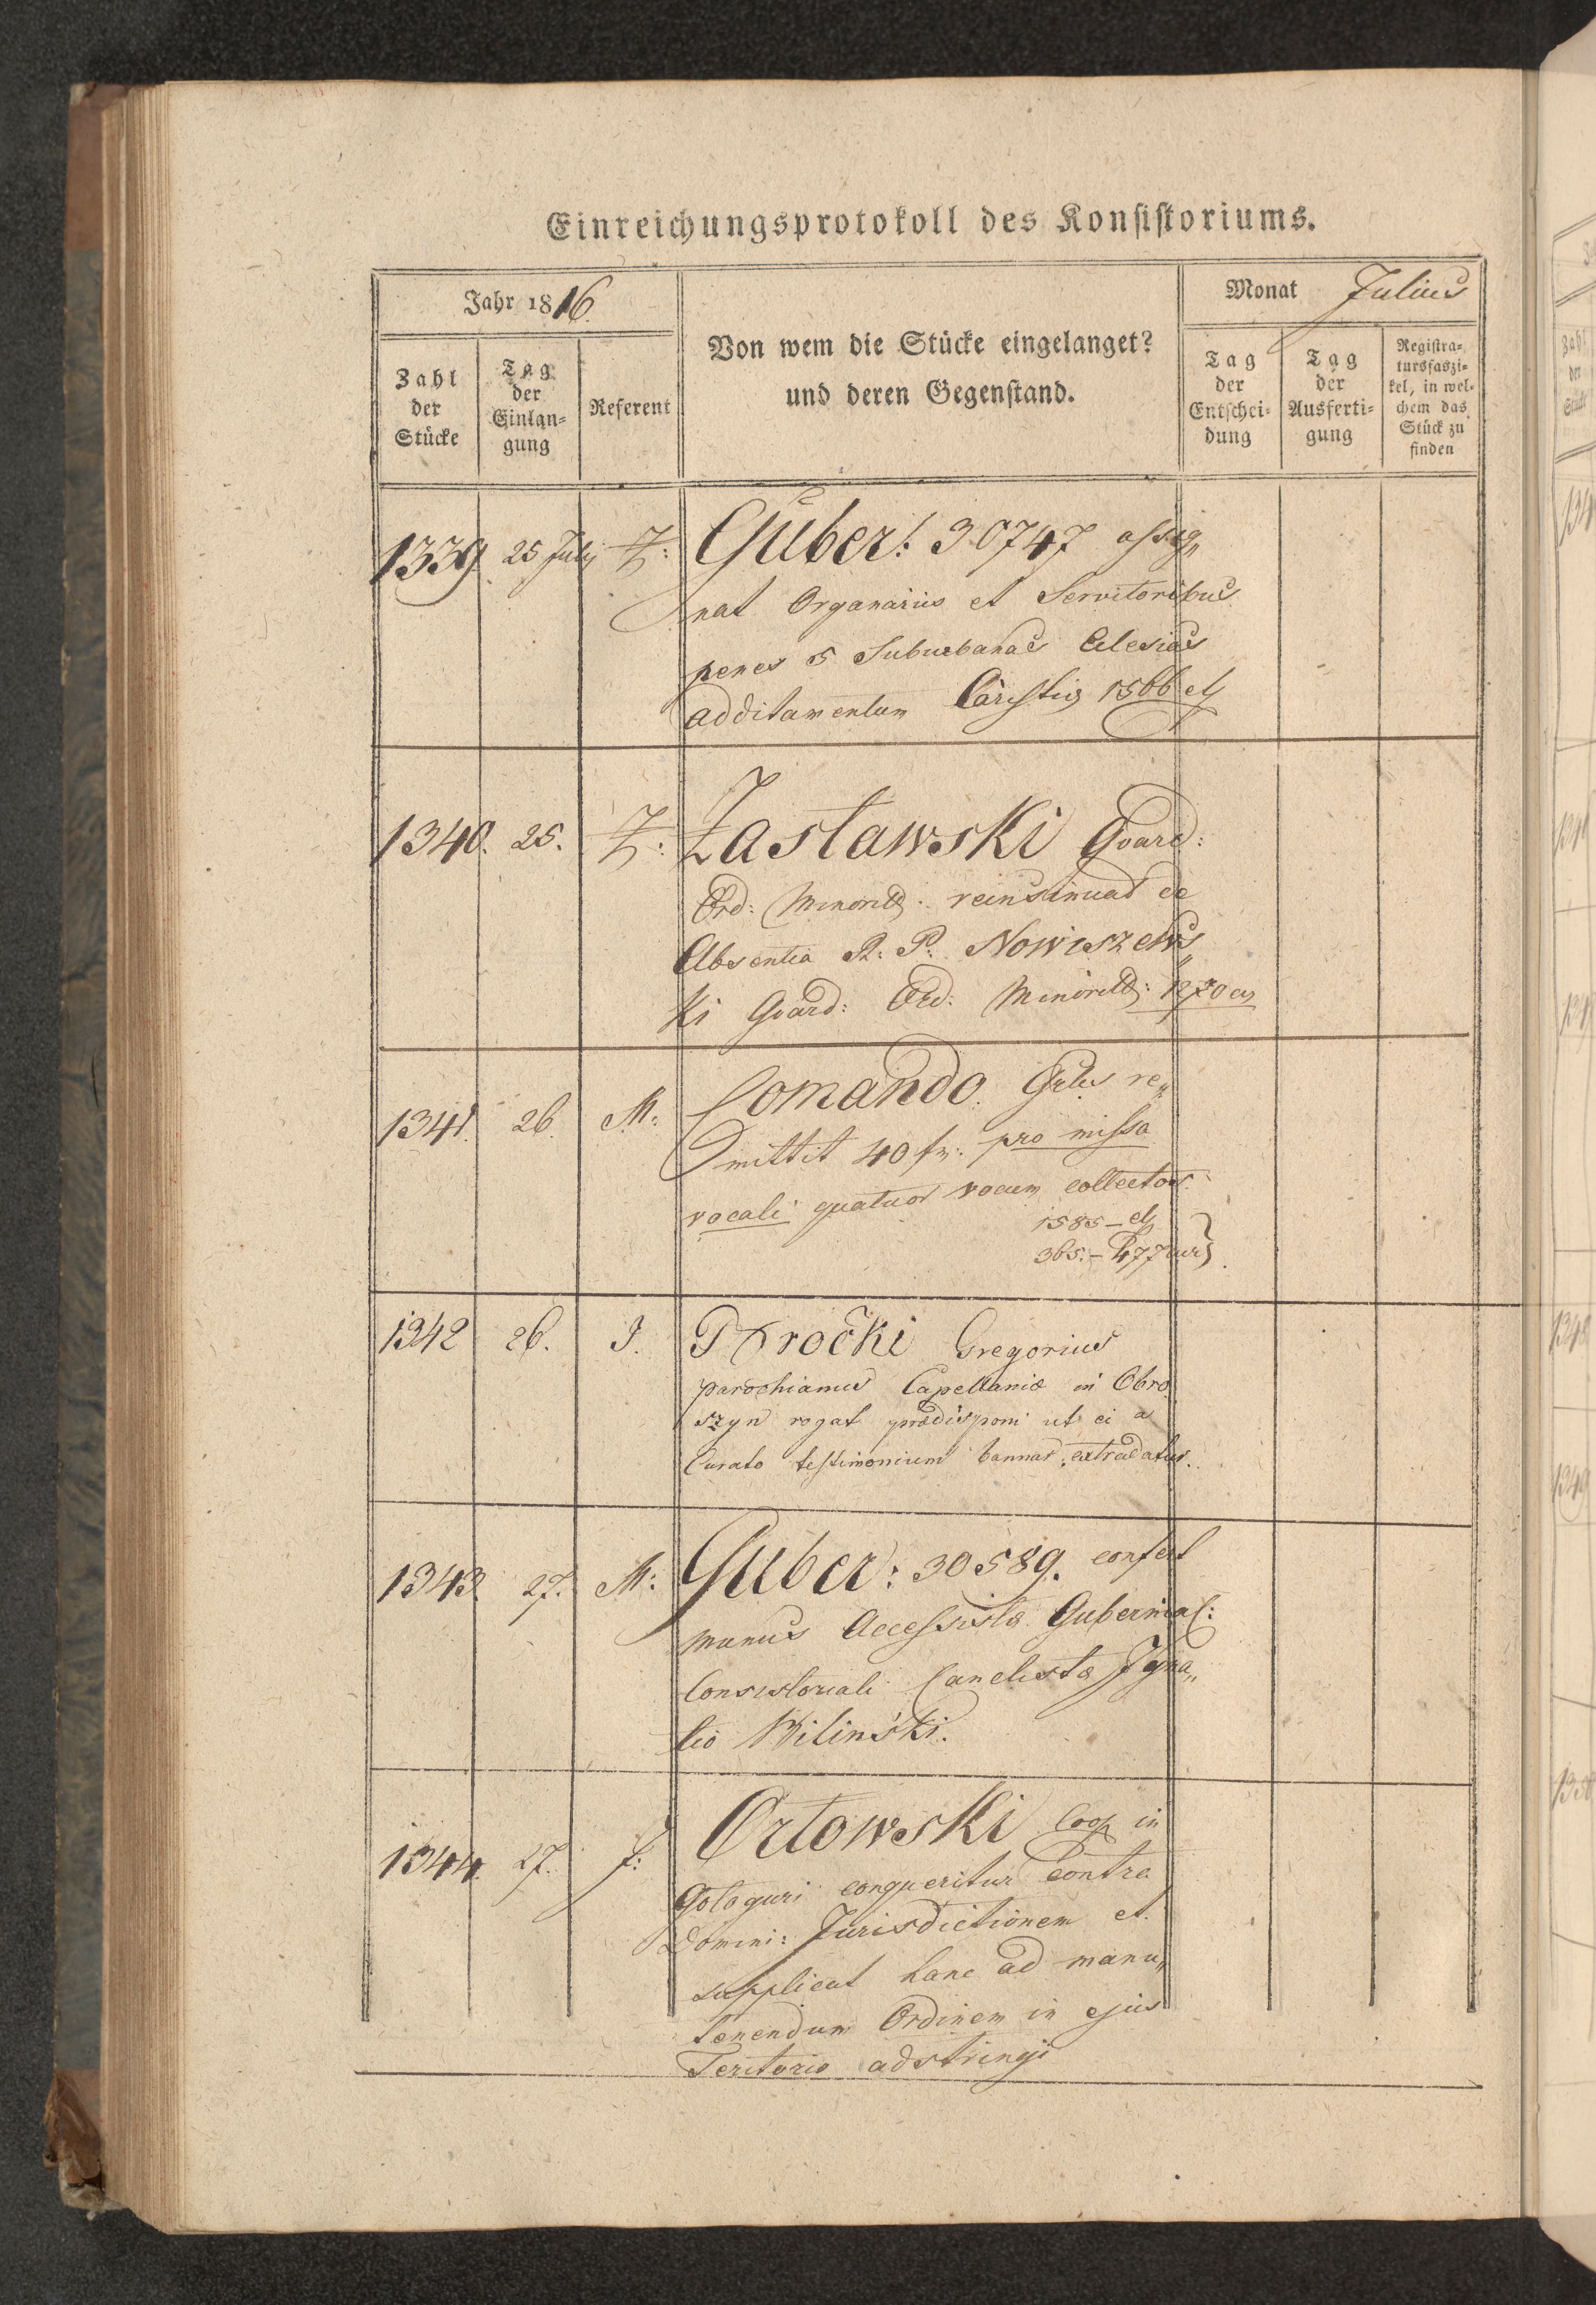 Einreichungsprotokoll des Konsistoriums.
Jahr 1816.
Von wem die Stücke eingelanget?
und deren Gegenstand.
Monat Julius
Zahl
der
Stücke
Tag
der
Einlan=
gung
Referent
Tag
der
Entschei=
dung
Tag
der
Ausferti=
gung
Registra=
tursfaszi=
kel, in wel=
chem das
Stück zu
finden
1339 25 July Z: Guber: 30747 assig„
nat Organariis et Servitoribus
penes 5 Suburbanas Eclesias
additamentum Caristiæ 1566
1340. 25. Z: Zasławski Guard:
Ord: Minorit: reinsinuat de
Absentia R: P: Nowiszews„
ki Guard: Ord: Minorit:
1341. 26. M: Comando Grles re„
mittit 40 fr: pro missa
vocali quatuor vocum collector.
1585
365.– 477
1342 26. J. Gregorius
parochianus Capellaniæ in Obro
szyn rogat prædisponi ut ei a
Curato testimonium bannor. extradatur.
1343. 27. M: Guber: 30589. confert
munus Accessistæ Gubernial:
Consistoriali Cancelistæ Igna„
tio Wilinski.
1344. 27. J: Orłowski Coop in
Gologuri conqueritur contra
Domini: Jurisdictionem et
supplicat hanc ad manu„
tenendum Ordinem in ejus
Teritorio adstringi